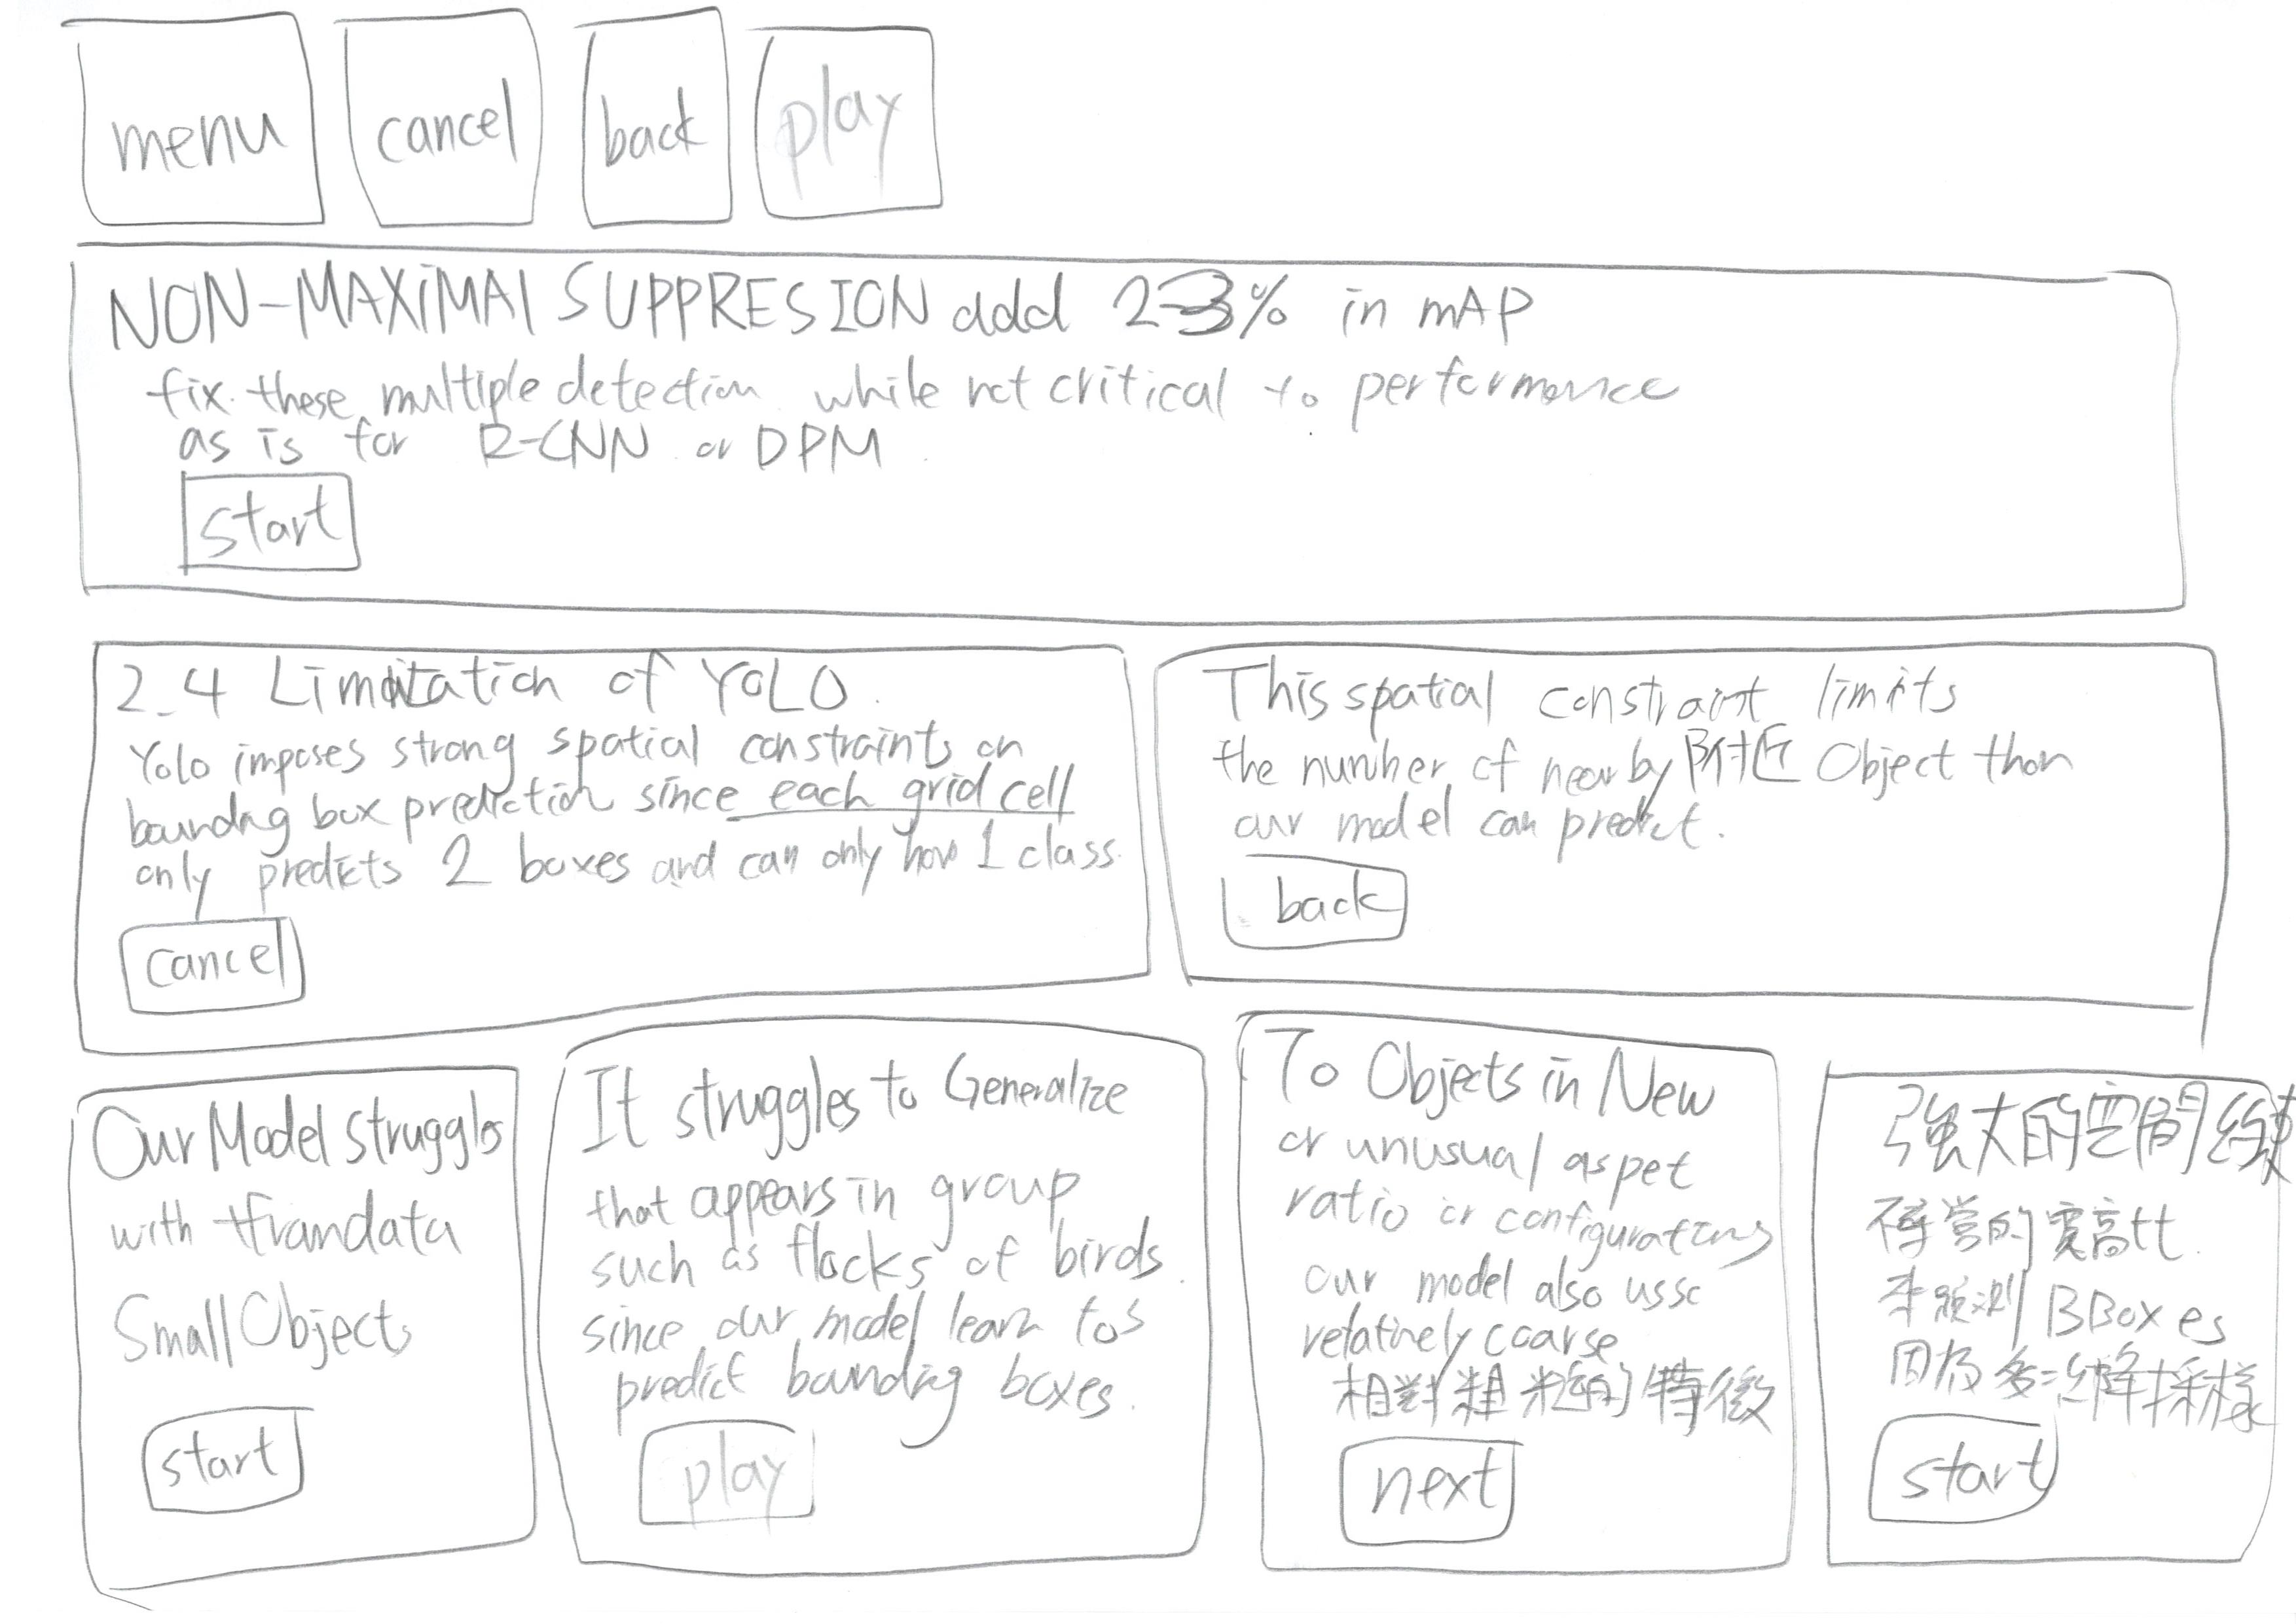 menu
cancel
back
play
NON-MAXIMAl SUPPRESION add 2-3% in mAP
fix these multiple detection while not critical to performance
as is for R-CNN or DPM
start
2.4 Limitation of YOLO
Yolo imposes strong spatial constraints on
bounding box prediction since each grid cell
only predicts 2 boxes and can only have 1 class.
cancel
This spatial constraint limits
the number of nearby 附近 Object than
our model can predict.
back
Our Model struggles
with
Small Objects
start
It struggles to Generalize
that appears in group
such as flocks of birds.
since our model learn to
predict bounding boxes.
play
To Objects in New
or unusual aspet
ratio or configurations
our model also
relatively coarse
相對粗糙的特徵
next
強大的空間
的寬高比
來預測 BBoxes
多次降採樣
start